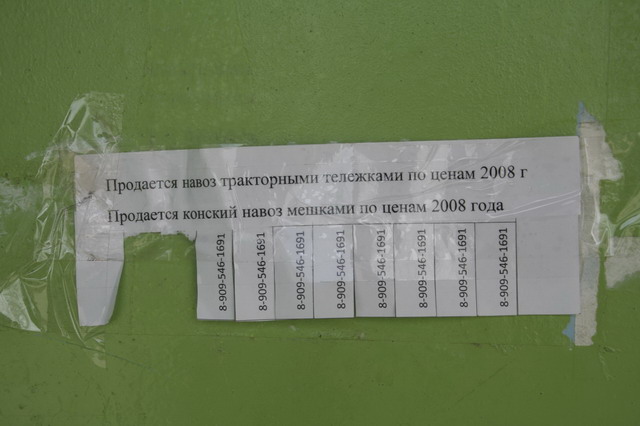 Продается навоз тракторными тележками по ценам 2008 г
Продается конский навоз мешками по ценам 2008 года
8-909-546-1691
8-909-546-1691
8-909-546-1691
8-909-546-1691
8-909-546-1691
8-909-546-1691
8-909-546-1691
8-909-546-1691